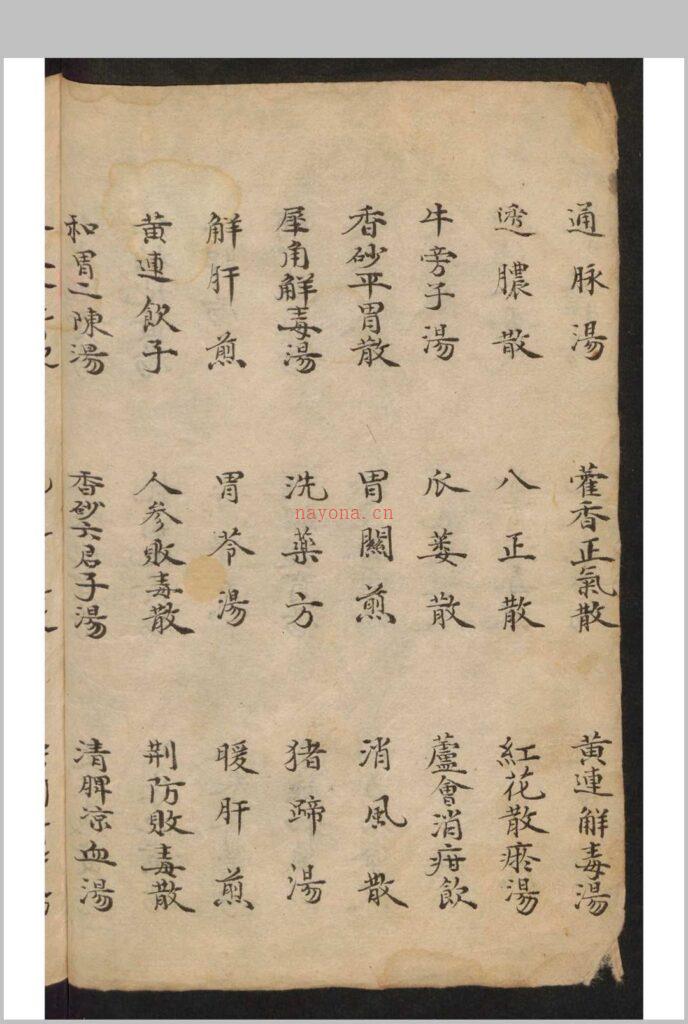 通脉湯
藿香正氣散
黄連解毒湯
透膿散
八正散
紅花散瘀湯
牛旁子湯
瓜蔞散
蘆會消疳飲
香砂平胃散
胃關煎
消風散
犀角解毒湯
洗藥方
猪蹄湯
解肝煎
胃苓湯
暖肝煎
黄連飲子
人參敗毒散
荆防敗毒散
和胃二陳湯
香砂六君子湯
清脾凉血湯
nayona.cn